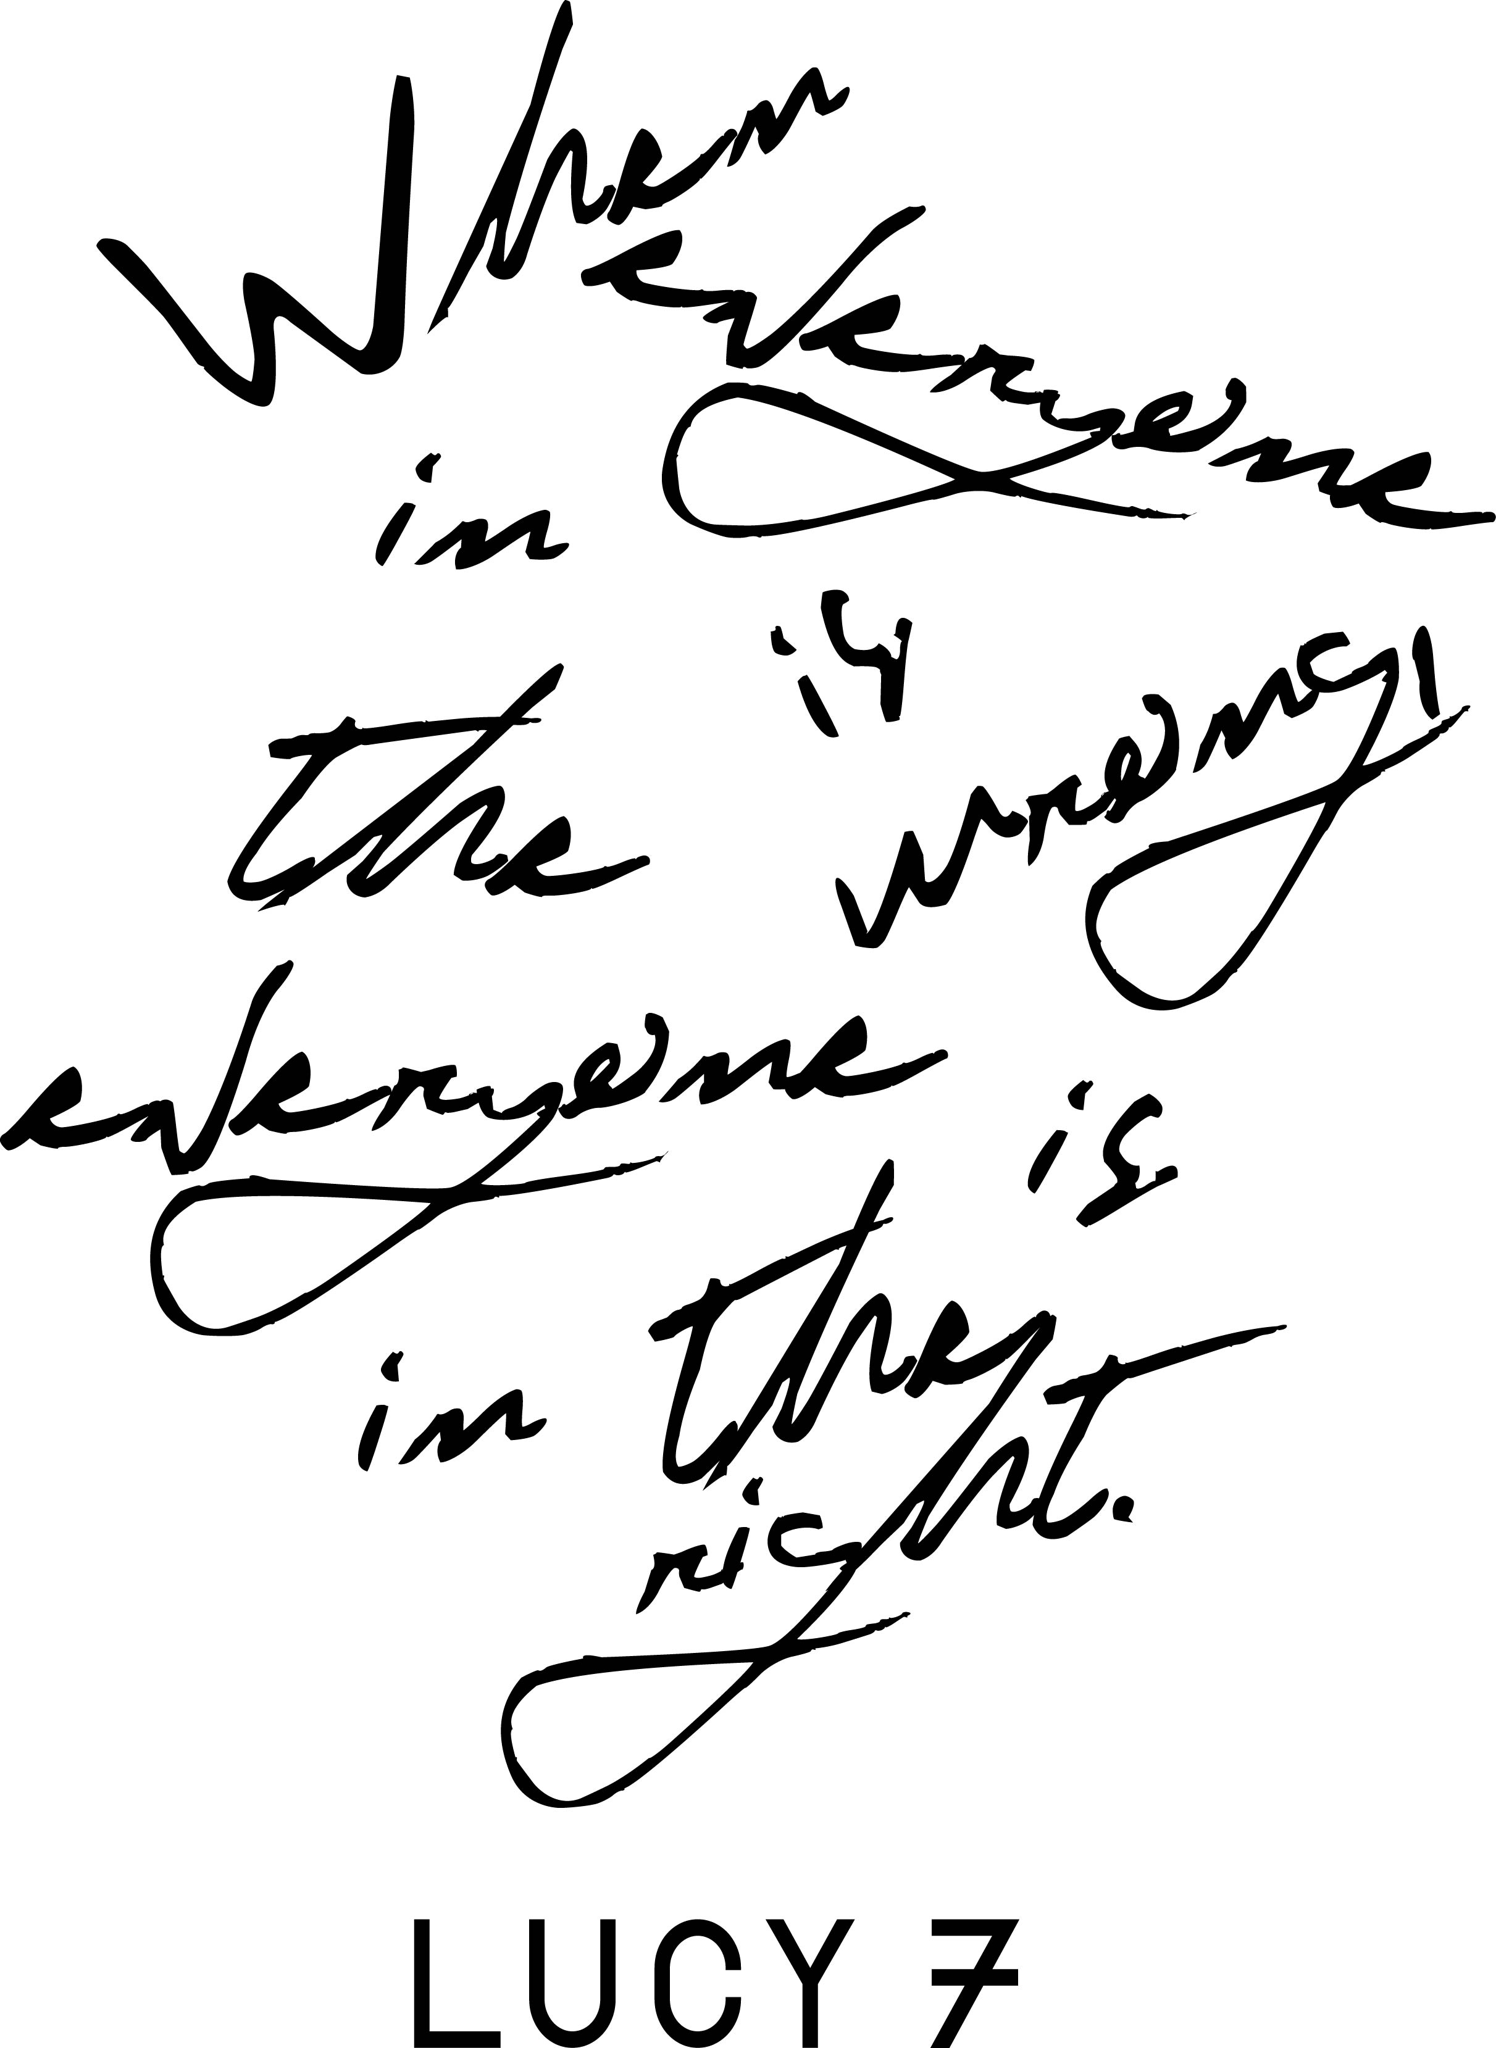 When
everyone
is
in
the
wrong,
everyone
is
in the
right.
LUCY 7